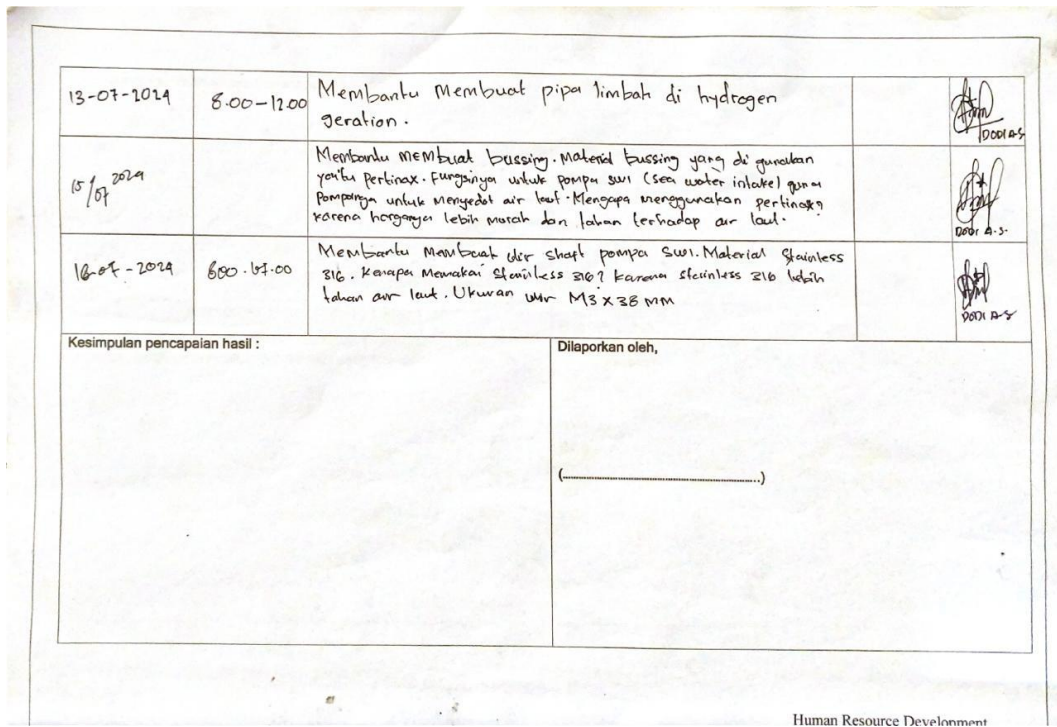 13-07-2024 8.00-12.00 Membantu Membuat pipa limbah di hydrogen
geration.
DODI A.S
15/07 2024 Membantu MEMbuat bussing. Material bussing yang di gunakan
yaitu Pertinax. Fungsinya untuk pompa swi (sea water intake) guna
Pompanya untuk Menyedot air laut. Mengapa menggunakan pertinax?
karena harganya lebih murah dan tahan terhadap air laut.
Dodi A.S.
16-07-2024 Membantu Membuat ulir shaft pompa SWI. Material Stainless
316. Kenapa Memakai Stainless 316? karena stainless 316 lebih
tahan air laut. Ukuran ulir M3 X 38 MM
DODI A-S
Kesimpulan pencapaian hasil :
Dilaporkan oleh,
(..........................................................)
Human Resource Development